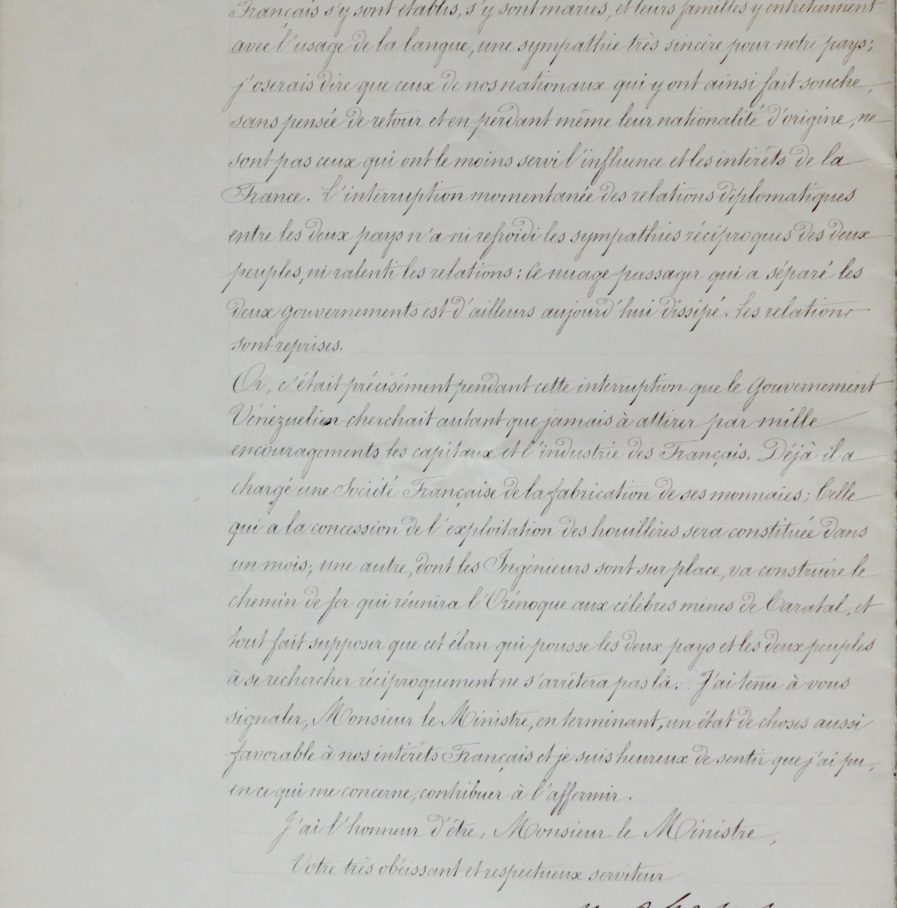 Français s'y sont établis, s'y sont mariés, et leurs familles y entretiennent
avec l'usage de la langue, une sympathie très sincère pour notre pays;
j'oserais dire que ceux de nos nationaux qui y ont ainsi fait souche,
sans pensée de retour et en perdant même leur nationalité d'origine, ne
sont pas ceux qui ont le moins servi l'influence et les intérêts de la
France. L'interruption momentanée des relations diplomatiques
entre les deux pays n'a ni refroidi les sympathies réciproques des deux
peuples, ni ralenti les relations: le nuage passager qui a séparé les
deux gouvernements est d'ailleurs aujourd'hui dissipé. Les relations
sont reprises.
Or, c'était précisément pendant cette interruption que le Gouvernement
Vénézuelien cherchait autant que jamais à attirer par mille
encouragements les capitaux et l'industrie des Français. Déjà il a
chargé une Société Française de la fabrication de ses monnaies; Celle
qui a la concession de l'exploitation des houillères sera constituée dans
un mois; une autre, dont les Ingénieurs sont sur place, va construire le
chemin de fer qui réunira l'Orénoque aux célèbres mines de Caratal, et
tout fait supposer que cet élan qui pousse les deux pays et les deux peuples
à se rechercher réciproquement ne s'arrêtera pas là. J'ai tenu à vous
signaler, Monsieur le Ministre, en terminant, un état de choses aussi
favorable à nos intérêts Français et je suis heureux de sentir que j'ai pu,
en ce qui me concerne, contribuer à l'affermir.
J'ai l'honneur d'être, Monsieur le Ministre,
Votre très obéissant et respectueux serviteur